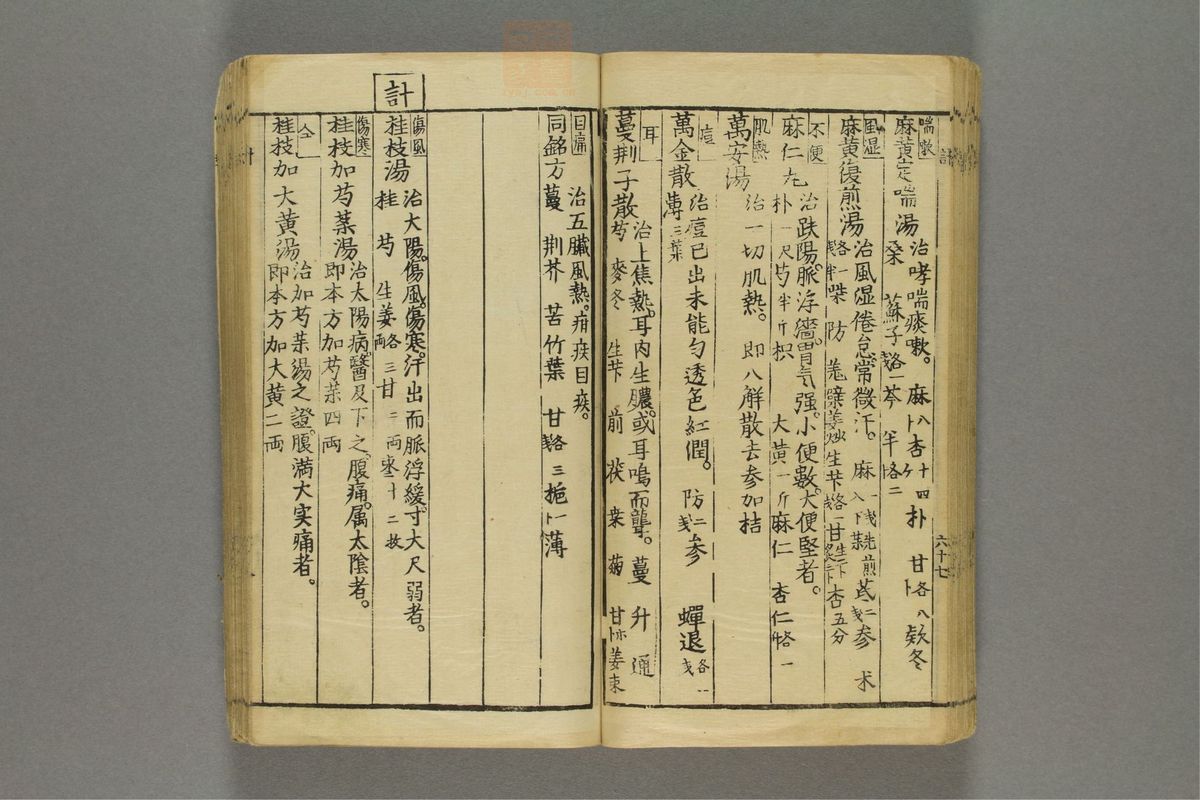 喘嗽
麻黄定喘湯
治哮喘痰嗽。麻八杏十四朴甘各八欵冬
桑蘇子各一芩半
風湿
麻黄復煎湯
治風湿倦怠常微汗。麻
防羗蘗姜炒生芐甘杏五分
不便
麻仁丸
治趺陽脈浮濇胃气强。小便數。大便堅者。
朴一尺芍半斤枳大黄一斤麻仁杏仁各一
肌熱
萬安湯
治一切肌熱。即八解散去参加桔
痘
萬金散
治痘已出未能匀透色紅潤。防二戔参蟬退各一戔
薄三葉
耳
蔓荆子散
治上焦熱。耳内生膿。或耳鳴而聾。蔓升通
芍麥冬生芐前茯桒菊甘姜束
六十七
目痛
同銘方
治五臟風熱。痟疾目疾。
蔓荆芥苦竹葉甘各三栀一薄
計
傷風
桂枝湯
治太陽。傷風。傷寒。汗出而脈浮緩。寸大尺弱者。
桂芍生姜各三两甘二两枣十二枚
傷寒
桂枝加芍薬湯
治太陽病。醫及下之。腹痛。属太陰者。
即本方加芍薬四両
仝
桂枝加大黄湯
治加芍薬湯之證。腹満大实痛者。
即本方加大黄二両